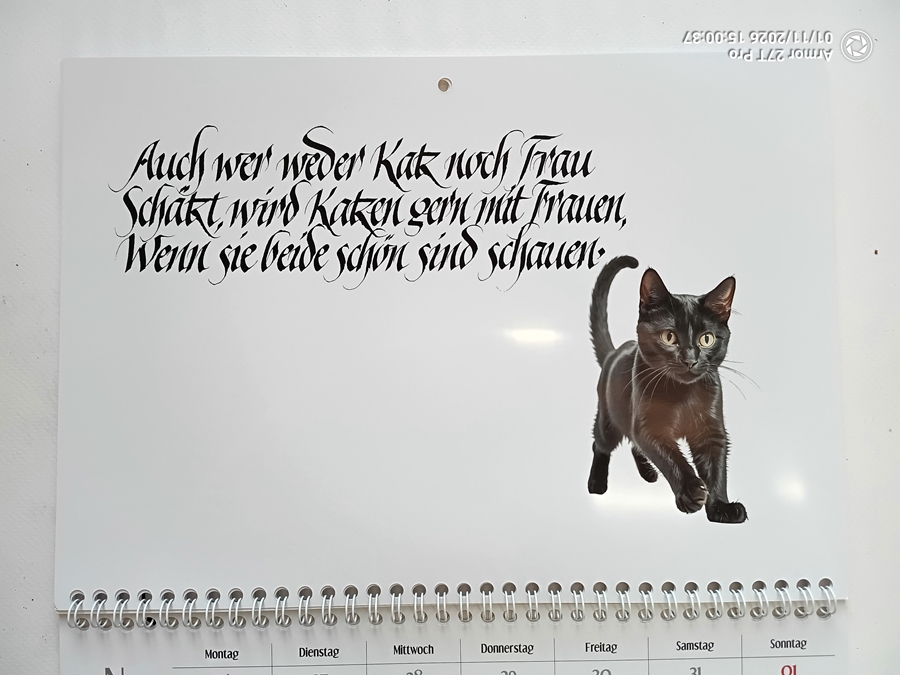 Armor 27T Pro
01/11/2026 15:00:37
Auch wer weder Katz noch Frau
Schätzt, wird Katzen gern mit Frauen,
Wenn sie beide schön sind schauen.
Montag Dienstag Mittwoch Donnerstag Freitag Samstag Sonntag
28 29 30 31 01